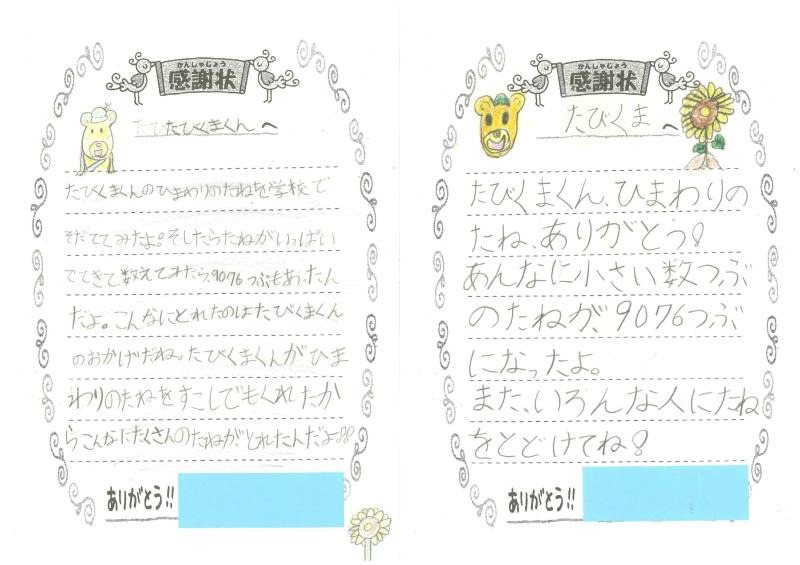 かんしゃじょう
感謝状
たびくまくんへ
たびくまくんのひまわりのたねを学校で
そだててみたよ。そしたらたねがいっぱい
でてきて、数えてみたら、9076つぶもあったん
だよ。こんなにとれたのはたびくまくん
のおかげだね。たびくまくんがひま
わりのたねをすこしでもくれたか
らこんなにたくさんのたねがとれたんだよ!!
ありがとう!!
かんしゃじょう
感謝状
たびくまへ
たびくまくん、ひまわりの
たね、ありがとう!
あんなに小さい数つぶ
のたねが、9076つぶ
になったよ。
また、いろんな人にたね
をとどけてね!
ありがとう!!